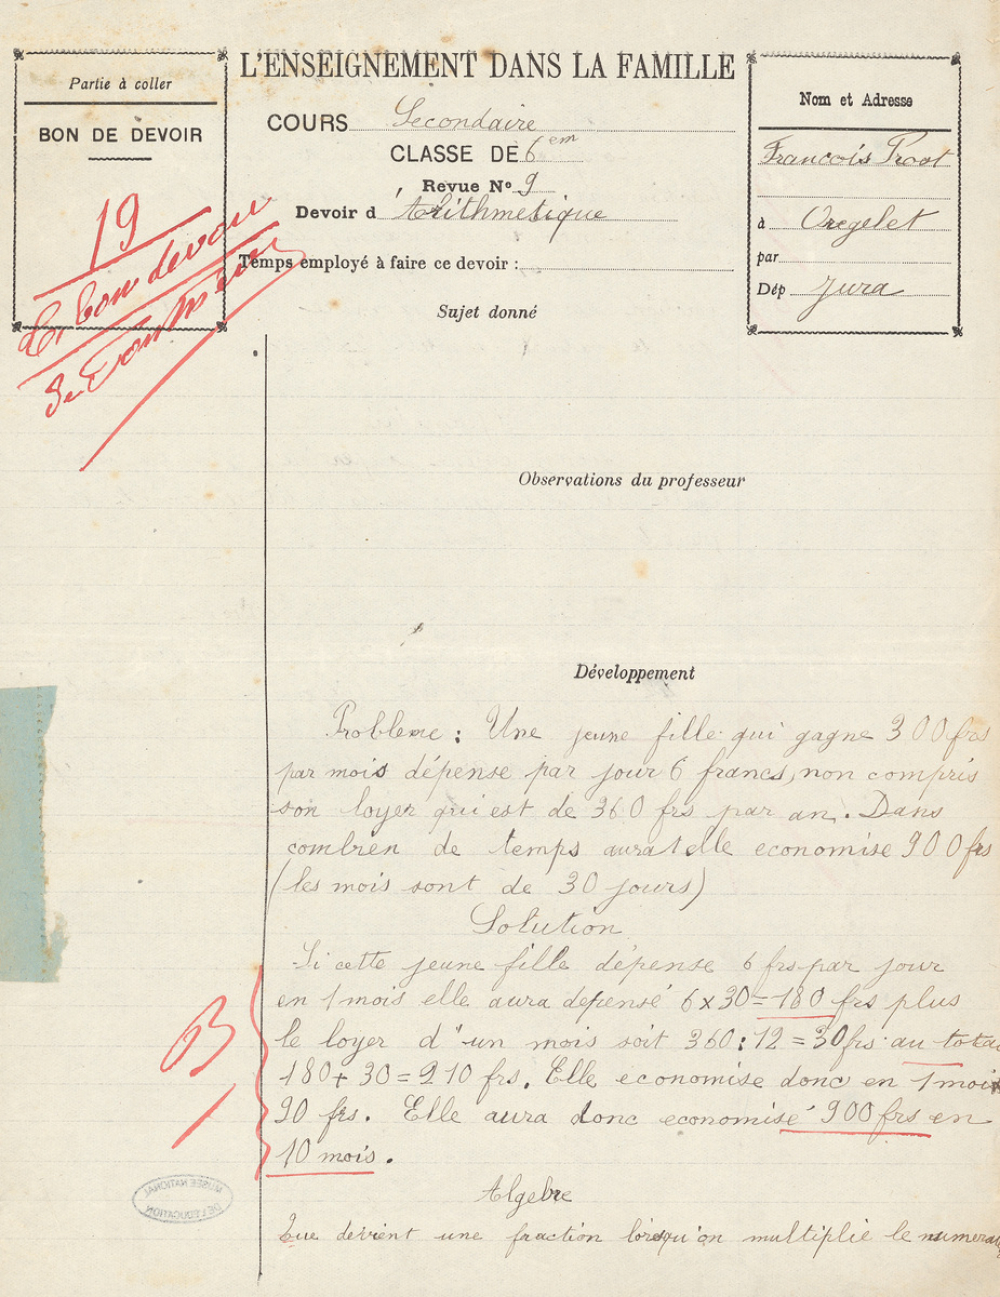 Partie à coller
BON DE DEVOIR
19
bon devoir
L'ENSEIGNEMENT DANS LA FAMILLE
COURS Secondaire
CLASSE DE 6em
Revue No 9
Devoir d'Arithmetique
Temps employé à faire ce devoir :
Nom et Adresse
Francois Prost
à Orgelet
par
Dép Jura
Sujet donné
Observations du professeur
Développement
Probleme : Une jeune fille qui gagne 300 frs
par mois dépense par jour 6 francs, non compris
son loyer qui est de 360 frs par an. Dans
combien de temps aura telle economise 900 frs
(les mois sont de 30 jours)
Solution
Si cette jeune fille dépense 6 frs par jour
en 1 mois elle aura depensé 6 x 30 = 180 frs plus
le loyer d'un mois soit 360 : 12 = 30 frs au total
180 + 30 = 210 frs. Elle economise donc en 1 mois
90 frs. Elle aura donc economisé 900 frs en
10 mois.
B
MUSÉE NATIONAL
DE L'ÉDUCATION
Algebre
Que devient une fraction lorsqu'on multiplie le numera